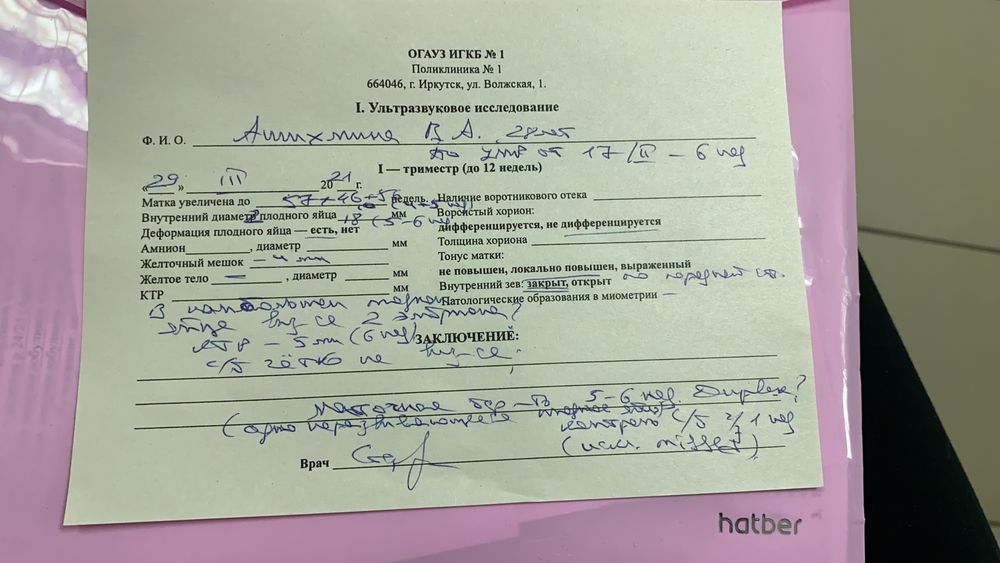 ОГАУЗ ИГКБ № 1
Поликлиника № 1
664046, г. Иркутск, ул. Волжская, 1.
I. Ультразвуковое исследование
Ф. И. О. Ашихмина В А. 28 лет
по УЗИ от 17/II – 6 нед
I — триместр (до 12 недель)
«29» III 2021 г.
Матка увеличена до 57+46+56 недель
Внутренний диаметр плодного яйца 18 (5-6 нед) мм
Деформация плодного яйца — есть, нет
Амнион , диаметр мм
Желточный мешок – 4 мм
Желтое тело — , диаметр мм
КТР мм
Наличие воротникового отека
Ворсистый хорион:
дифференцируется, не дифференцируется
Толщина хориона
Тонус матки:
не повышен, локально повышен, выраженный
по передней ст.
Внутренний зев: закрыт, открыт
Патологические образования в миометрии —
В плодном
яйце виз-ся 2 эмбриона?
КТР – 5 мм (6 нед)
с/б чётко не виз-ся;
ЗАКЛЮЧЕНИЕ:
маточная бер-ть 5-6 нед. Двойня?
(одно неразвивающееся контроль с/б ч/з 1 нед
(искл. missed)
Врач
hatber